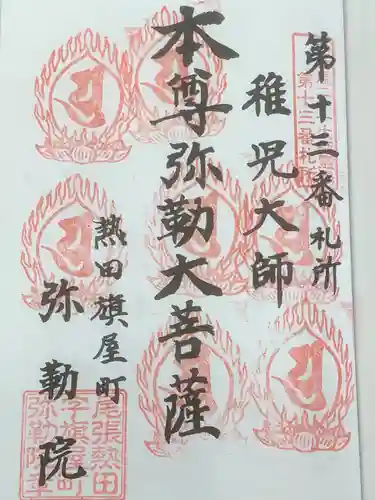 第十三番札所
稚児大師
本尊弥勒大菩薩
熱田旗屋町
弥勒院
第十三番札所
尾張熱田
旗屋町
弥勒院章